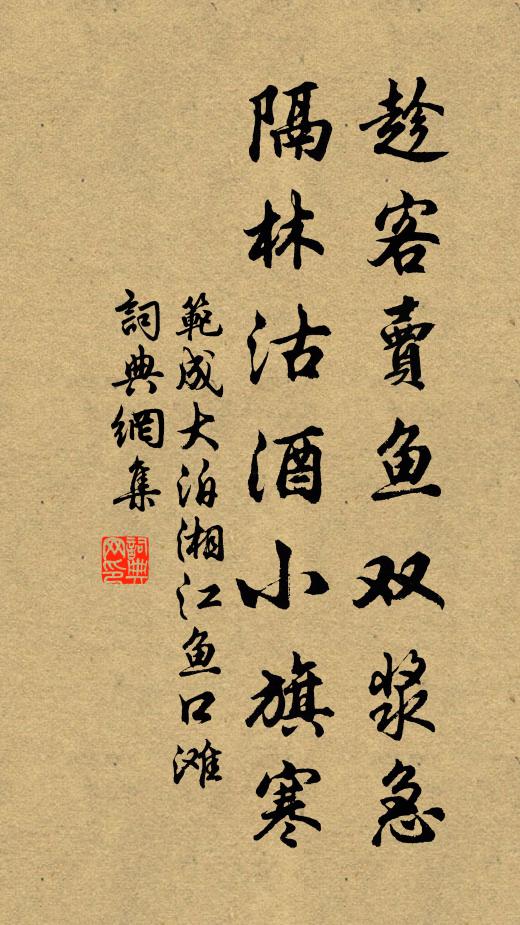 趁客賣鱼双浆急
隔林沽酒小旗寒
範成大泊湘江鱼口滩
詞典網集
詞典网印